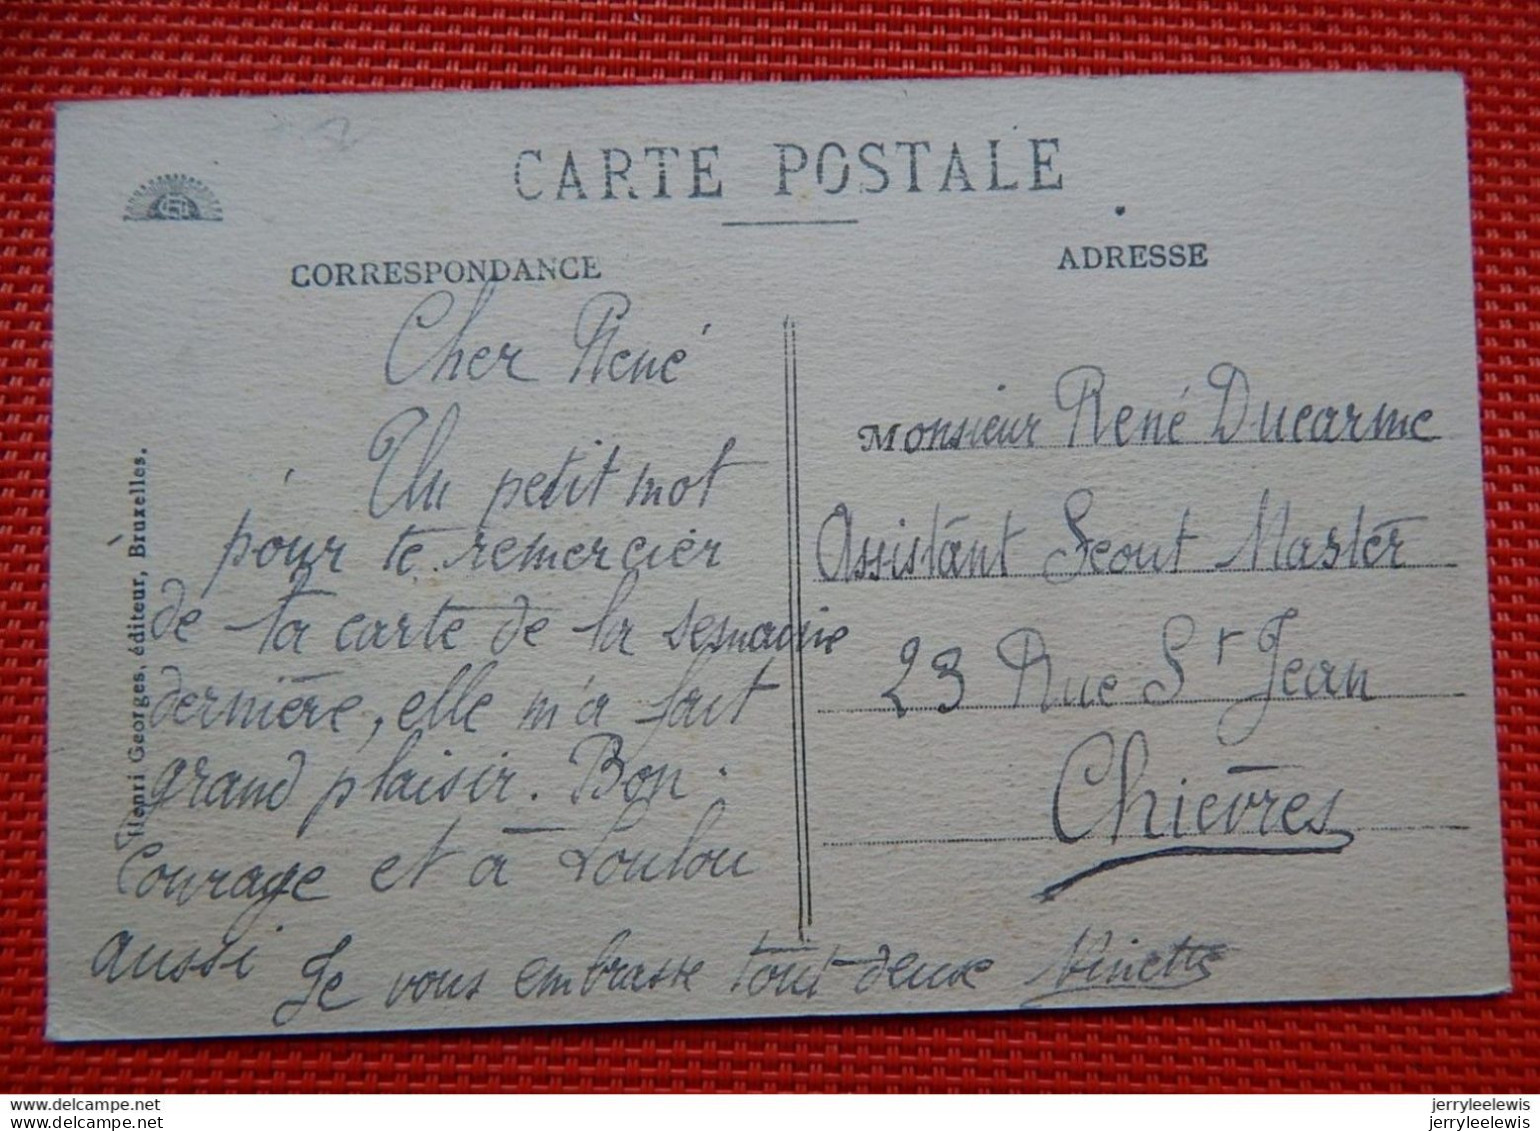 CARTE POSTALE
CORRESPONDANCE
ADRESSE
Cher René
Un petit mot
pour te remercier
de ta carte de la semaine
dernière, elle m'a fait
grand plaisir. Bon
Courage et à Loulou
aussi Je vous embrasse tout deux Ninette
Monsieur René Ducarme
Assistant Scout Master
23 Rue St Jean
Chièvres
Henri Georges, éditeur, Bruxelles.
www.delcampe.net
www.delcampe.net
jerryleelewis
jerryleelewis